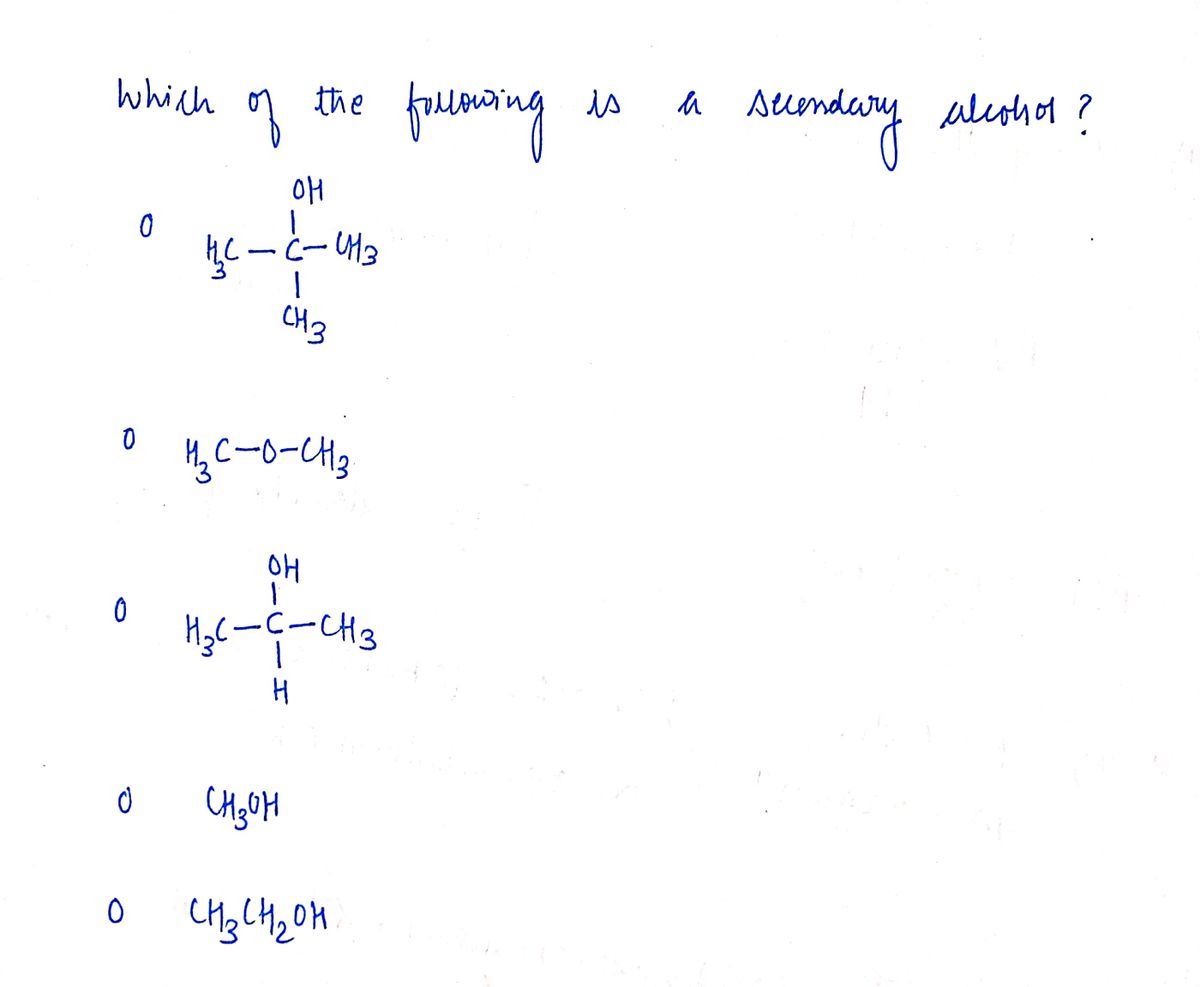 Which of the following is a secondary alcohol?
OH
|
O H3C — C — CH3
|
CH3
O H3C — O — CH3
OH
|
O H3C — C — CH3
|
H
O CH3OH
O CH3CH2OH